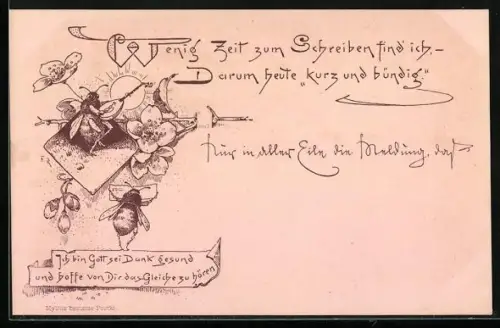 Wenig Zeit zum Schreiben find ich,–
Darum heute „kurz und bündig."
Nur in aller Eile die Meldung, daß
Ich bin Gott sei Dank gesund
und hoffe von Dir das Gleiche zu hören
F.R.